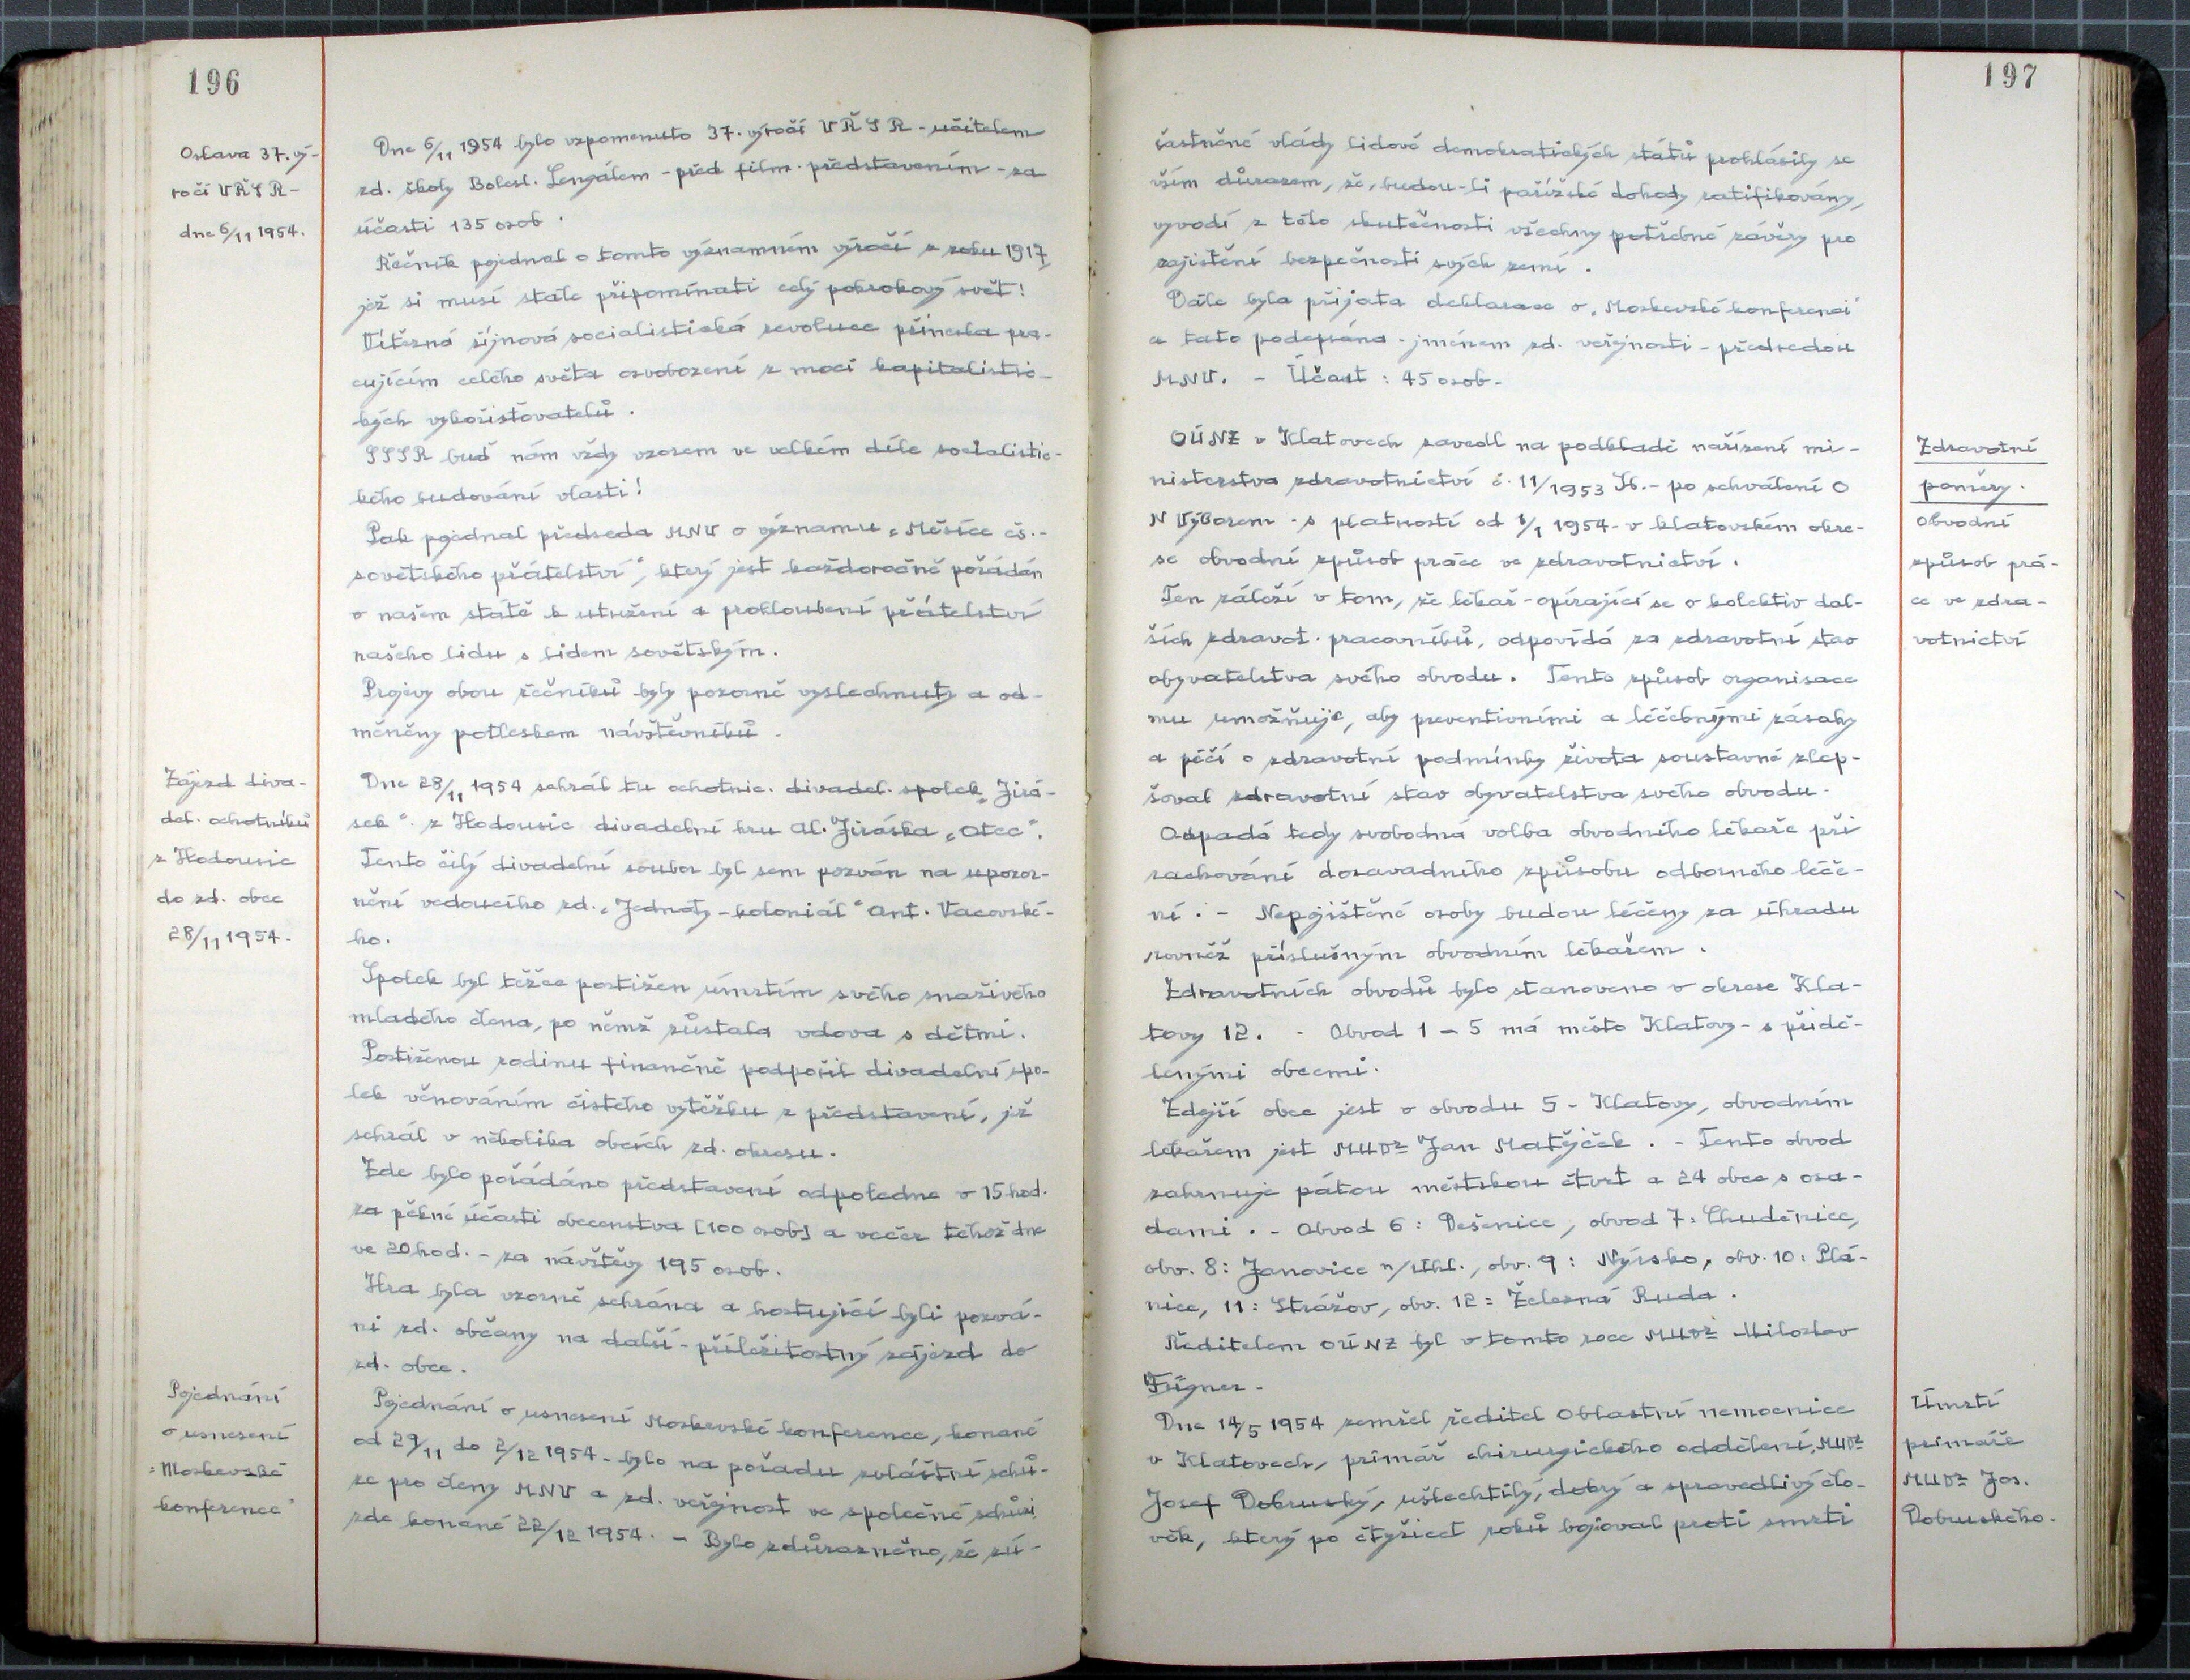 196
Oslava 37. vý-
ročí VŘSR-
dne 6/11 1954.
Dne 6/11 1954 bylo vzpomenuto 37. výročí VŘSR - učitelem
zd. školy Bolesl. Lengálem - před film. představením - za
účasti 135 osob.
Řečník pojednal o tomto významném výročí z roku 1917,
jež si musí stále připomínati celý pokrokový svět!
Vítězná říjnová socialistická revoluce přinesla pra-
cujícím celého světa osvobození z moci kapitalistic-
kých vykořisťovatelů.
SSSR buď nám vždy vzorem ve velkém díle socialistic-
kého budování vlasti!
Pak pojednal předseda MNV o významu „Měsíce čs.-
sovětského přátelství", který jest každoročně pořádán
v našem státě k utužení a prohloubení přátelství
našeho lidu s lidem sovětským.
Projevy obou řečníků byly pozorně vyslechnuty a od-
měněny potleskem návštěvníků.
Zájezd diva-
del. ochotníků
z Hodousic
do zd. obce
28/11 1954.
Dne 28/11 1954 sehrál tu ochotnic. divadel. spolek „Jirá-
sek" z Hodousic divadelní hru Al. Jiráska „Otec".
Tento čilý divadelní soubor byl sem pozván na upozor-
nění vedoucího zd. „Jednoty - koloniál" Ant. Vacovské-
ho.
Spolek byl těžce postižen úmrtím svého snaživého
mladého člena, po němž zůstala vdova s dětmi.
Postiženou rodinu finančně podpořil divadelní spo-
lek věnováním čistého výtěžku z představení, jež
sehrál v několika obcích zd. okresu.
Zde bylo pořádáno představení odpoledne v 15 hod.
za pěkné účasti obecenstva [100 osob] a večer téhož dne
ve 20 hod. - za návštěvy 195 osob.
Hra byla vzorně sehrána a hostující byli pozvá-
ni zd. občany na další - příležitostný zájezd do
zd. obce.
Pojednání
o usnesení
„Moskevské
konference"
Pojednání o usnesení Moskevské konference, konané
od 29/11 do 2/12 1954 - bylo na pořadu zvláštní schů-
ze pro členy MNV a zd. veřejnost ve společné schůzi,
zde konané 22/12 1954. - Bylo zdůrazněno, že zú-
197
častněné vlády lidově demokratických států prohlásily se
vším důrazem, že, budou-li pařížské dohody ratifikovány,
vyvodí z této skutečnosti všechny potřebné závěry pro
zajištění bezpečnosti svých zemí.
Dále byla přijata deklarace o „Moskevské konferenci"
a tato podepsána - jménem zd. veřejnosti - předsedou
MNV. - Účast: 45 osob.
Zdravotní
poměry.
Obvodní
způsob prá-
ce ve zdra-
votnictví
OÚNZ v Klatovech zavedl na podkladě nařízení mi-
nisterstva zdravotnictví č. 11/1953 Sb. - po schválení O
N Výborem - s platností od 1/1 1954 - v klatovském okre-
se obvodní způsob práce ve zdravotnictví.
Ten záleží v tom, že lékař - opírající se o kolektiv dal-
ších zdravot. pracovníků, odpovídá za zdravotní stav
obyvatelstva svého obvodu. Tento způsob organisace
mu umožňuje, aby preventivními a léčebnými zásahy
a péčí o zdravotní podmínky života soustavně zlep-
šoval zdravotní stav obyvatelstva svého obvodu.
Odpadá tedy svobodná volba obvodního lékaře při
zachování dosavadního způsobu odborného léče-
ní. - Nepojištěné osoby budou léčeny za úhradu
rovněž příslušným obvodním lékařem.
Zdravotních obvodů bylo stanoveno v okrese Kla-
tovy 12. - Obvod 1 - 5 má město Klatovy - s přidě-
lenými obcemi.
Zdejší obec jest v obvodu 5 - Klatovy, obvodním
lékařem jest MUDr Jan Matějček. - Tento obvod
zahrnuje pátou městskou čtvrť a 24 obce s osa-
dami. - Obvod 6: Dešenice, obvod 7: Chudenice,
obv. 8: Janovice n/Úhl., obv. 9: Nýrsko, obv. 10: Plá-
nice, 11: Strážov, obv. 12: Železná Ruda.
Ředitelem OÚNZ byl v tomto roce MUDr Miloslav
Fügner.
Úmrtí
primáře
MUDr Jos.
Dobruského.
Dne 14/5 1954 zemřel ředitel Oblastní nemocnice
v Klatovech, primář chirurgického oddělení, MUDr
Josef Dobruský, ušlechtilý, dobrý a spravedlivý člo-
věk, který po čtyřicet roků bojoval proti smrti